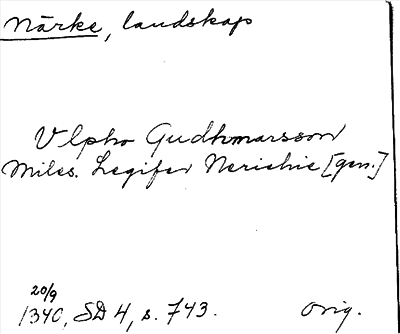 Närke, landskap
Vlpho Gudhmarsson
Miles. Legifer Nerichie [gen.]
20/9
1340, SD 4, s. 743. orig.